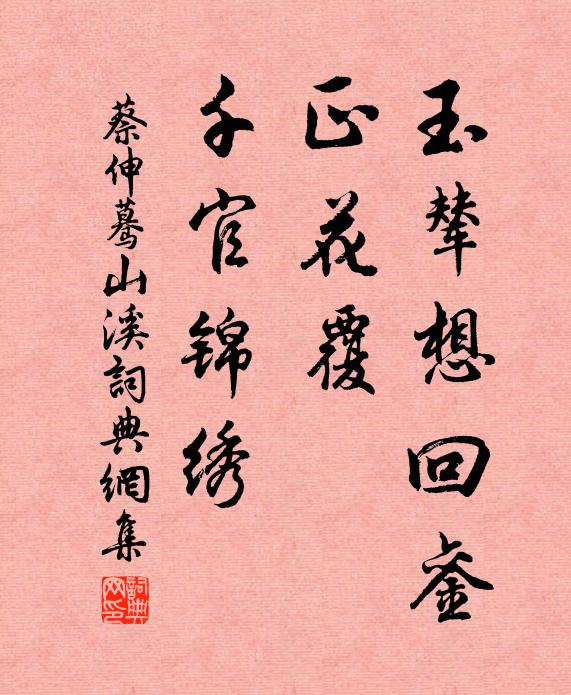 玉辇想回銮
正花覆
千官锦绣
蔡伸蓦山溪詞典網集
詞典
网印